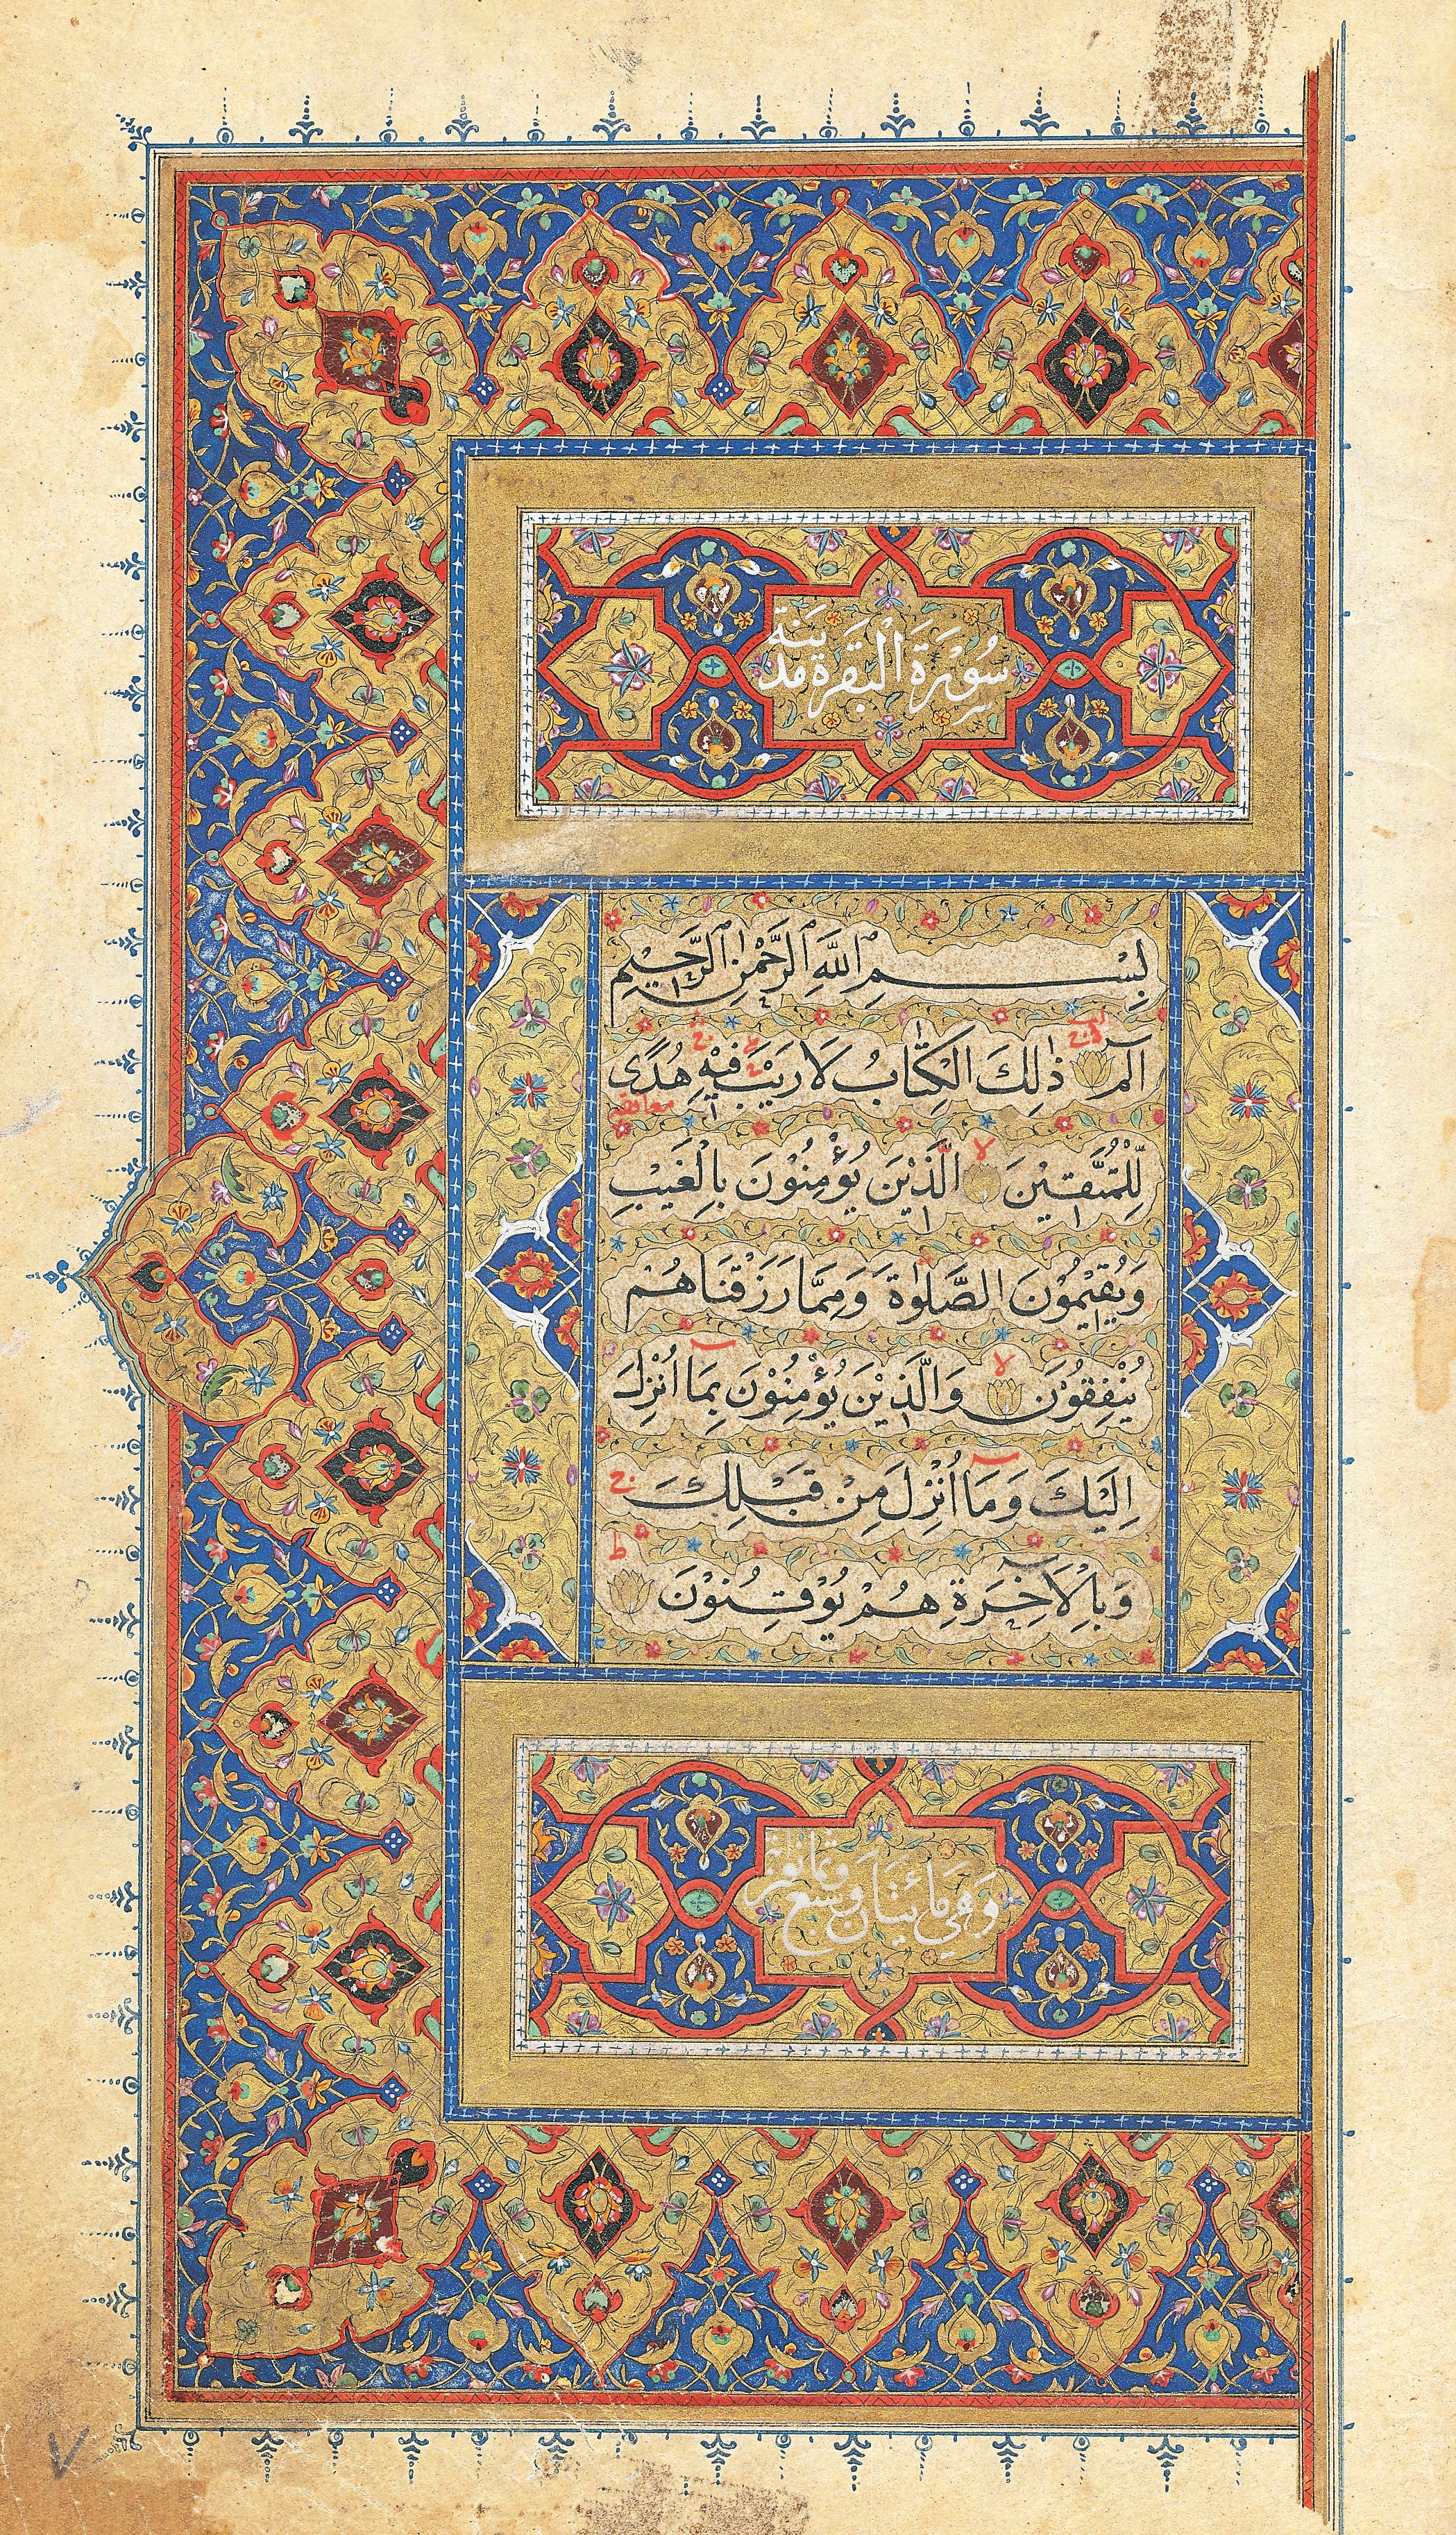 سُوْرَةُ الْبَقَرَة مَدَنِيَّة
بِسْمِ اللهِ الرَّحْمٰنِ الرَّحِيْمِ
الٓمّٓ ذٰلِكَ الْكِتَابُ لَا رَيْبَ فِيْهِ هُدًى
معانقه
لِّلْمُتَّقِيْنَ لا الَّذِيْنَ يُؤْمِنُوْنَ بِالْغَيْبِ
وَيُقِيْمُوْنَ الصَّلٰوةَ وَمِمَّا رَزَقْنَاهُمْ
يُنْفِقُوْنَ لا وَالَّذِيْنَ يُؤْمِنُوْنَ بِمَآ اُنْزِلَ
اِلَيْكَ وَمَآ اُنْزِلَ مِنْ قَبْلِكَ ج
وَبِالْاٰخِرَةِ هُمْ يُوْقِنُوْنَ ط
وَهِيَ مائَتَان وَسَبْع وثمانون